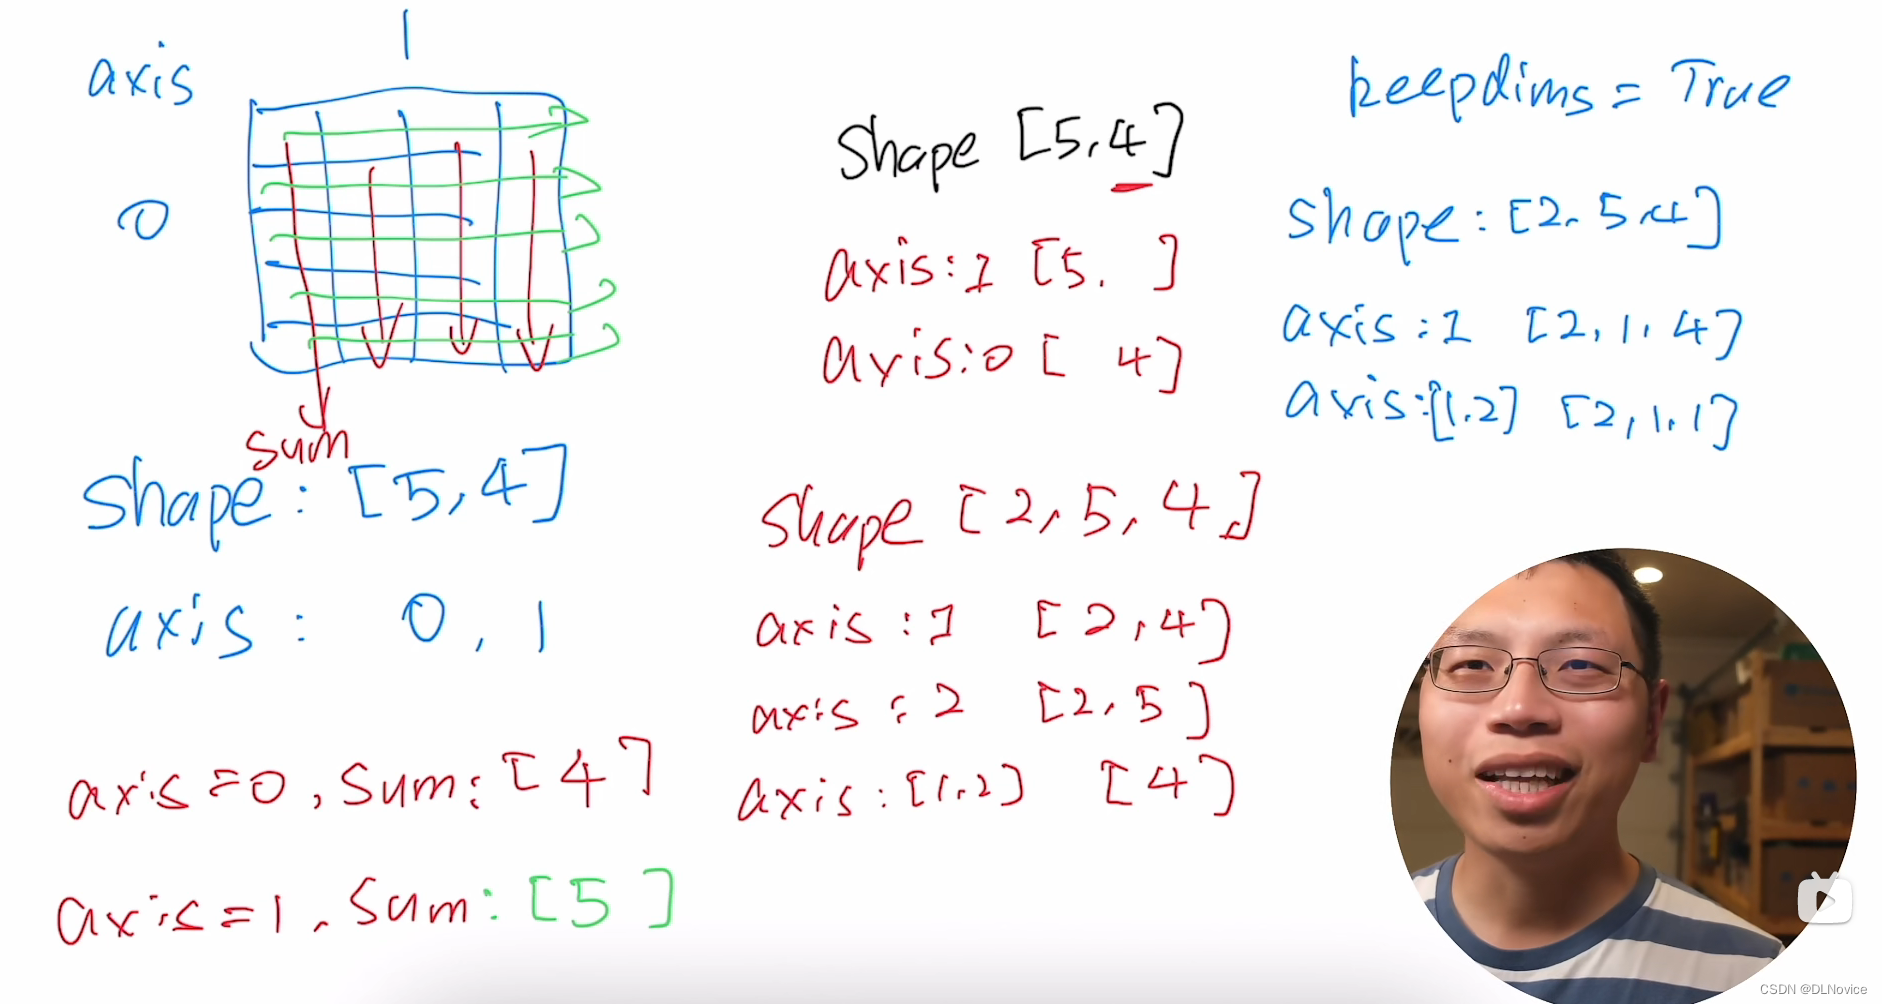 axis
1
0
sum
shape: [5,4]
axis: 0, 1
axis=0, sum: [4]
axis=1. sum: [5 ]
Shape [5,4]
axis:1 [5. ]
axis:0 [ 4]
shape [2,5,4,]
axis:1 [2,4]
axis:2 [2,5]
axis:[1,2] [4]
keepdims=True
shape:[2.5.4]
axis:1 [2,1.4]
axis:[1.2] [2,1.1]
CSDN @DLNovice